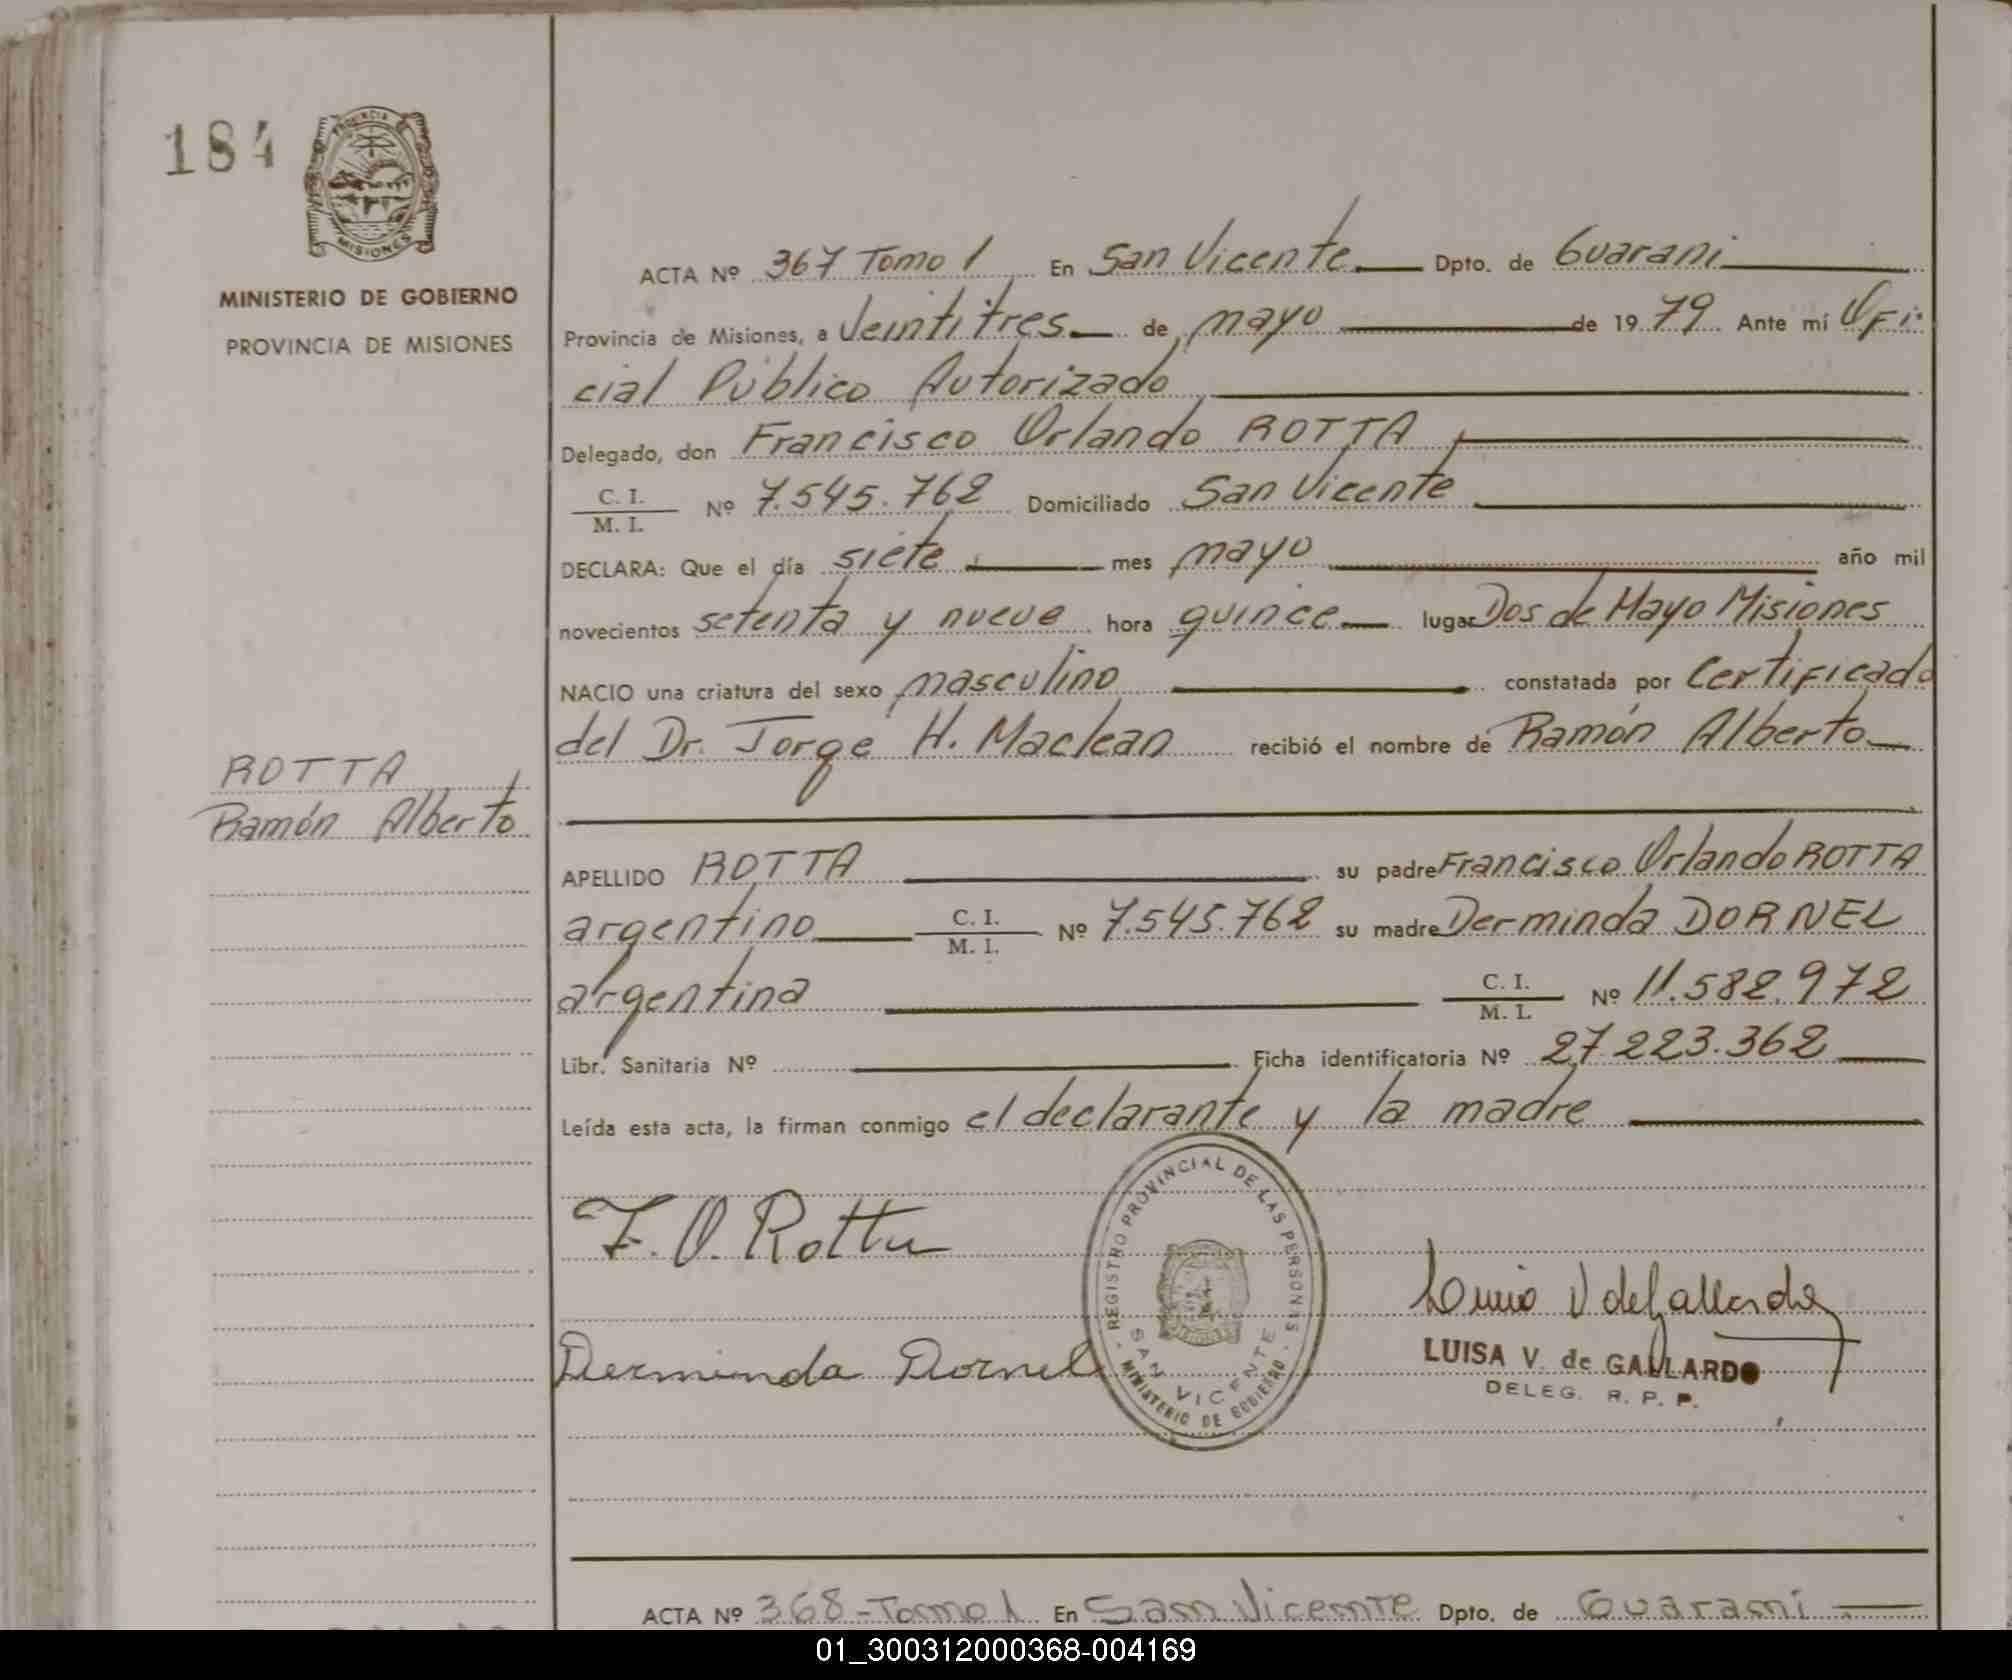 184
PROVINCIA DE
MISIONES
MINISTERIO DE GOBIERNO
PROVINCIA DE MISIONES
ROTTA
Ramón Alberto
ACTA Nº 367 Tomo 1 En San Vicente Dpto. de Guarani
Provincia de Misiones, a Veintitres de mayo de 1979 Ante mí Ofi-
cial Público Autorizado
Delegado, don Francisco Orlando ROTTA
C. I.
M. I. Nº 7.545.762 Domiciliado San Vicente
DECLARA: Que el día siete mes mayo año mil
novecientos setenta y nueve hora quince lugar Dos de Mayo Misiones
NACIO una criatura del sexo masculino constatada por Certificado
del Dr. Jorge H. Maclean recibió el nombre de Ramón Alberto
APELLIDO ROTTA su padre Francisco Orlando ROTTA
argentino C. I. M. I. Nº 7.545.762 su madre Derminda DORNEL
argentina C. I. M. I. Nº 11.582.972
Libr. Sanitaria Nº Ficha identificatoria Nº 27.223.362
Leída esta acta, la firman conmigo el declarante y la madre
F. O. Rotta
Derminda Dornel
REGISTRO PROVINCIAL DE LAS PERSONAS
SAN VICENTE
MINISTERIO DE GOBIERNO
Luisa V de Gallardo
LUISA V. de GALLARDO
DELEG. R. P. P.
ACTA Nº 368 - Tomo 1 En San Vicente Dpto. de Guarani
01_300312000368-004169